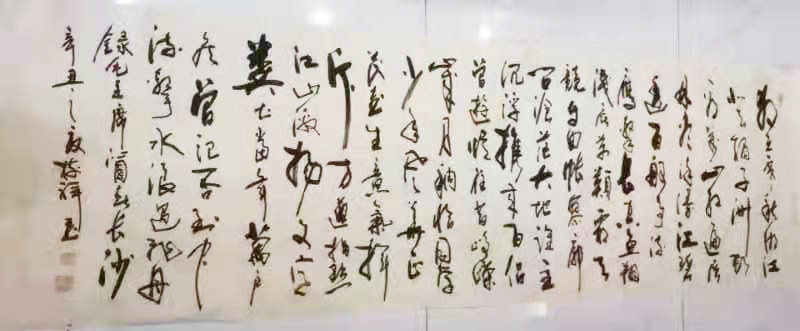 独立寒秋湘江
北去橘子洲头
看万山红遍层
林尽染漫江碧
透百舸争流
鹰击长空鱼翔
浅底万類霜天
競自由帐寥廓
问苍茫大地谁主
沉浮携来百侣
曾遊忆往昔峥嵘
岁月稠恰同学
少年风华正
茂书生意氣挥
斥方遒指點
江山激扬文字
粪土当年萬户
侯曾记否到中
流擊水浪遏飛舟
録毛主席沁园春长沙
辛丑之夏 祥书